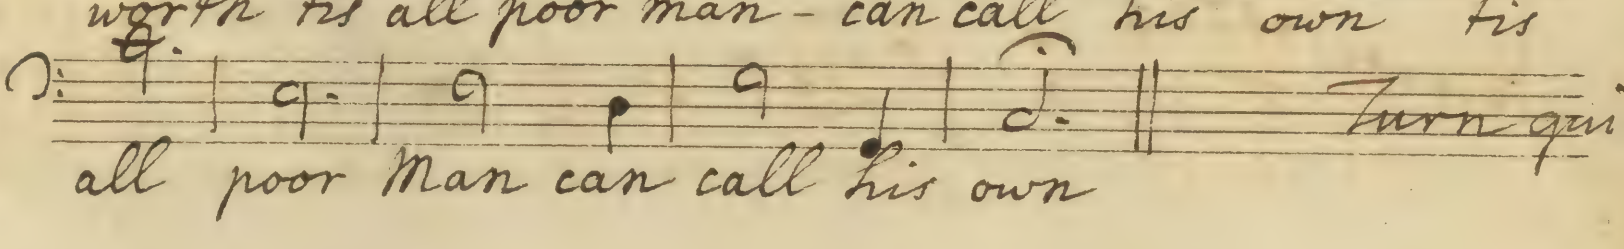 worth tis all poor man - can call his own tis
Turn qui
all poor Man can call his own